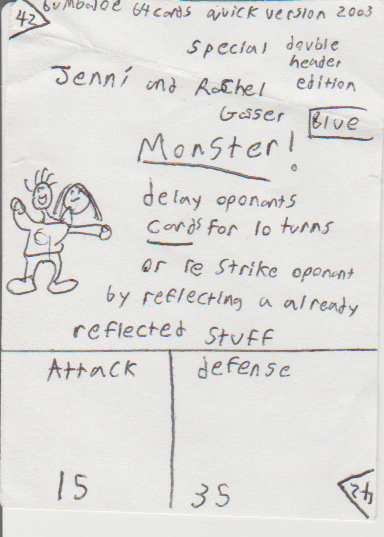 42
Gumbaloe 64 cards quick version 2003
special double
header
Jenni and Rachel edition
Gosser Blue
Monster!
delay oponants
cards for 10 turns
or re strike oponant
by reflecting a already
reflected stuff
Attack defense
15 35
42